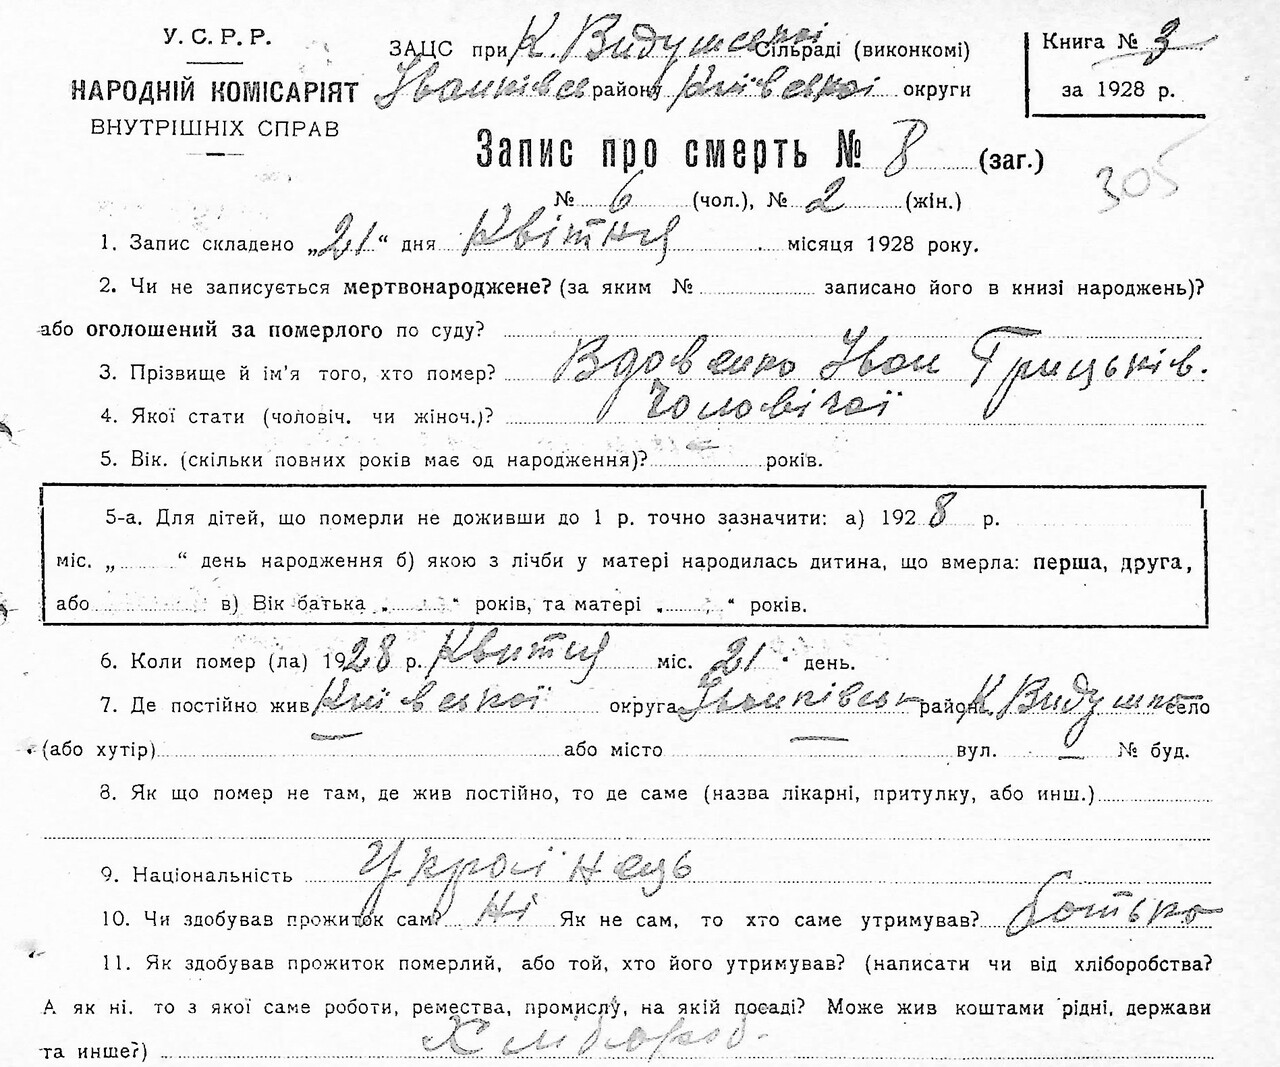 У. С. Р. Р.
НАРОДНІЙ КОМІСАРІЯТ
ВНУТРІШНІХ СПРАВ
ЗАЦС при К. Видушської Сільраді (виконкомі)
Іванківсь району Київської округи
Книга № 3
за 1928 р.
Запис про смерть № 8 (заг.)
305
№ 6 (чол.), № 2 (жін.)
1. Запис складено „21“ дня Квітня місяця 1928 року.
2. Чи не записується мертвонароджене? (за яким № записано його в книзі народжень)?
або оголошений за померлого по суду?
3. Прізвище й ім'я того, хто помер? Вдовенко Іван Грицьків.
4. Якої стати (чоловіч. чи жіноч.)? Чоловічої
5. Вік. (скільки повних років має од народження)? — років.
5-а. Для дітей, що померли не доживши до 1 р. точно зазначити: а) 1928 р.
міс. „ “ день народження б) якою з лічби у матері народилась дитина, що вмерла: перша, друга,
або в) Вік батька „ “ років, та матері „ “ років.
6. Коли помер (ла) 1928 р. Квітня міс. 21 “ день.
7. Де постійно жив Київської округа Іванківськ район К Видушка село
(або хутір) — або місто — вул. — № буд.
8. Як що помер не там, де жив постійно, то де саме (назва лікарні, притулку, або инш.)
9. Національність Українець
10. Чи здобував прожиток сам? Ні Як не сам, то хто саме утримував? батько
11. Як здобував прожиток померлий, або той, хто його утримував? (написати чи від хліборобства?
А як ні, то з якої саме роботи, ремества, промислу, на якій посаді? Може жив коштами рідні, держави
та инше?) Хлібороб.